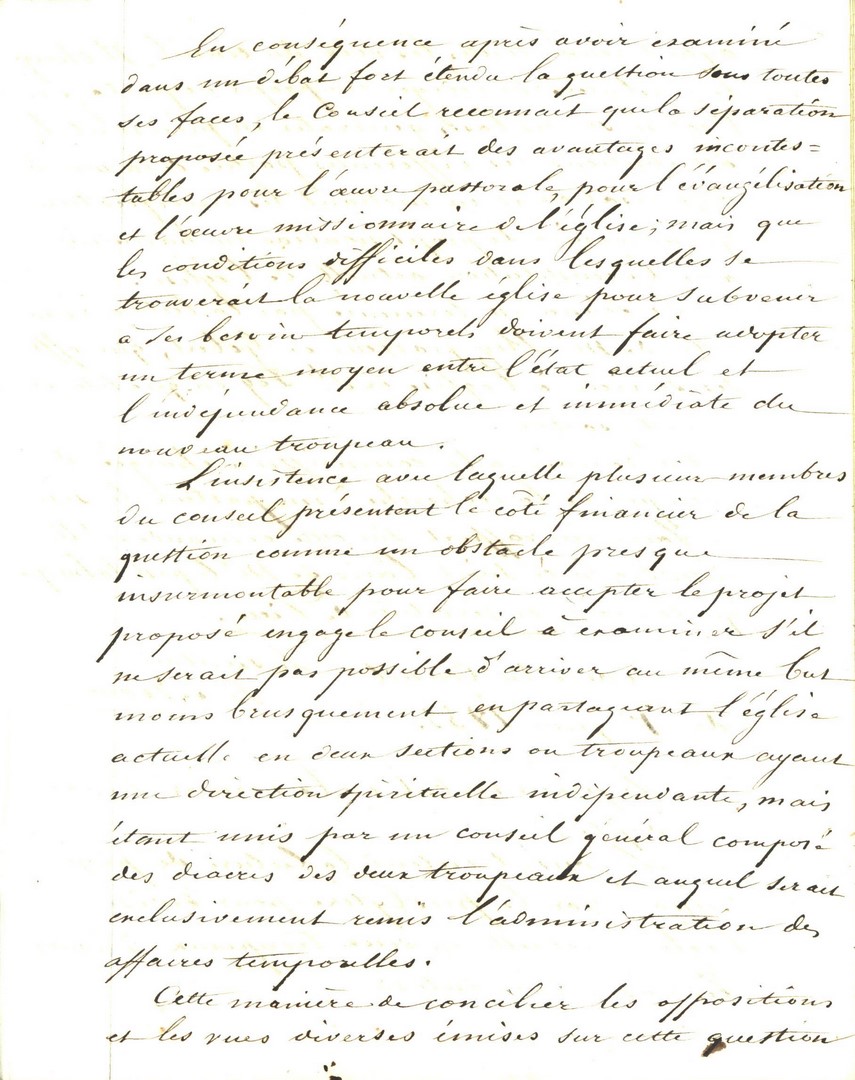 En conséquence après avoir examiné
dans un débat fort étendu la question sous toutes
ses faces, le Conseil reconnaît que la séparation
proposée présenterait des avantages incontes=
tables pour l'œuvre pastorale, pour l'évangélisation
et l'œuvre missionnaire de l'église; mais que
les conditions difficiles dans lesquelles se
trouverait la nouvelle église pour subvenir
à ses besoins temporels doivent faire adopter
un terme moyen entre l'état actuel et
l'indépendance absolue et immédiate du
nouveau troupeau.
L'insistence avec laquelle plusieurs membres
du conseil présentent le côté financier de la
question comme un obstacle presque
insurmontable pour faire accepter le projet
proposé engage le conseil à examiner s'il
ne serait pas possible d'arriver au même but
moins brusquement en partageant l'église
actuelle en deux sections ou troupeaux ayant
une direction spirituelle indépendante, mais
étant unis par un conseil général composé
des diacres des deux troupeaux et auquel serait
exclusivement remis l'administration des
affaires temporelles.
Cette manière de concilier les oppositions
et les vues diverses émises sur cette question